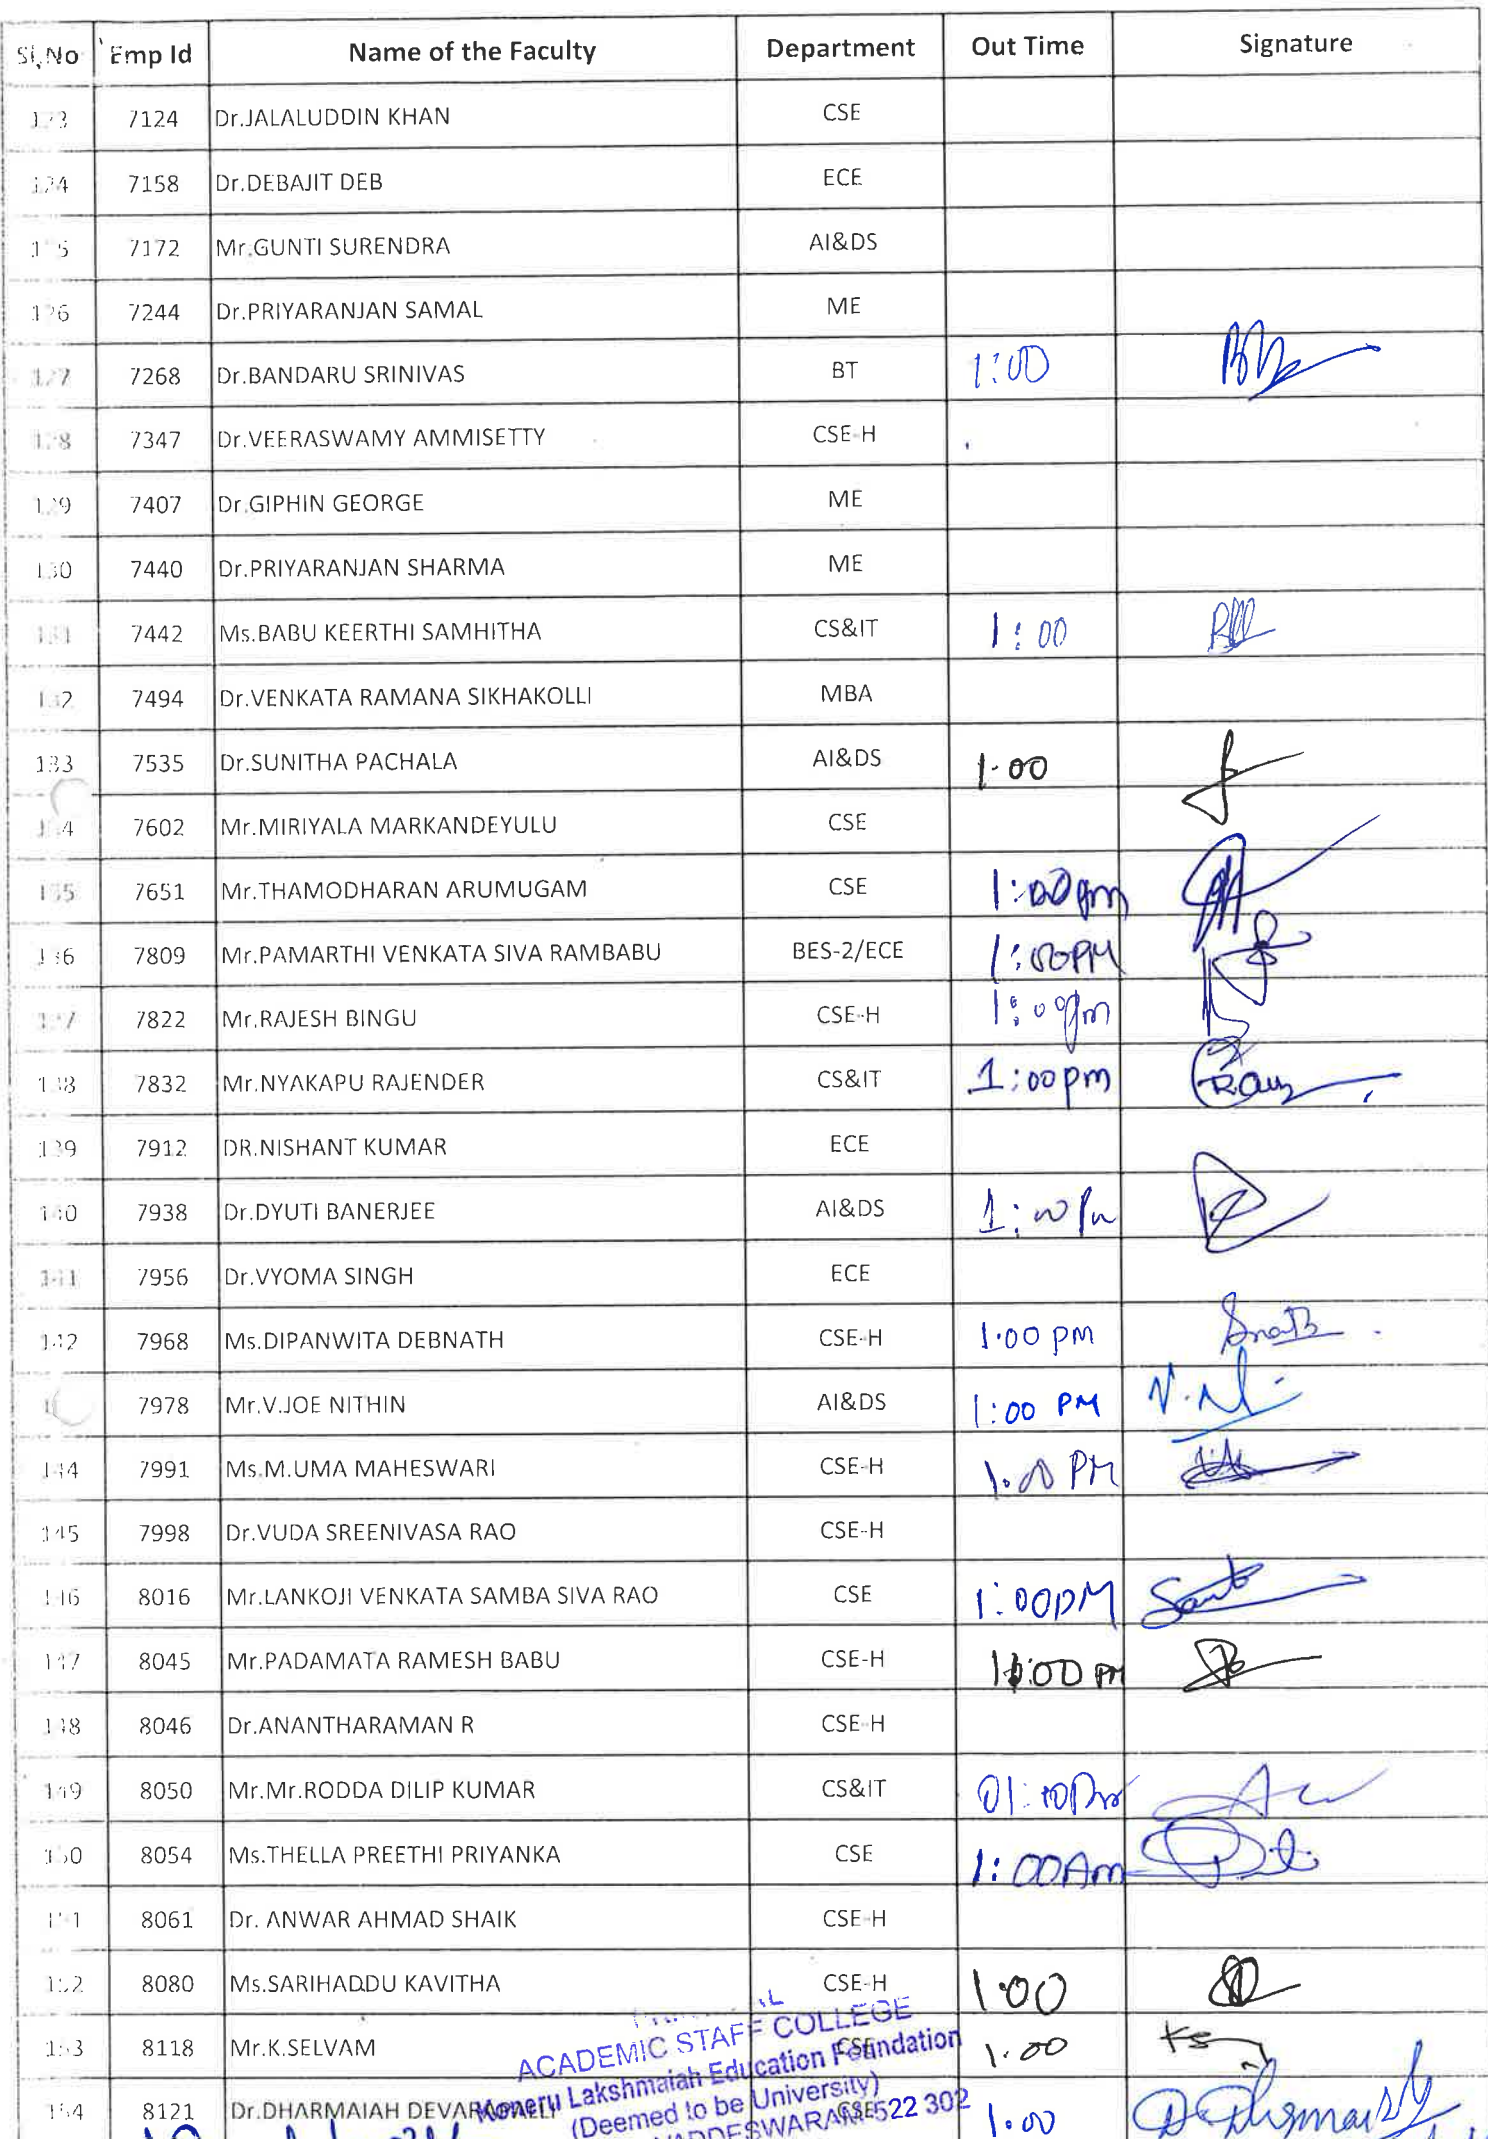 Sl.No Emp Id Name of the Faculty Department Out Time Signature
123 7124 Dr.JALALUDDIN KHAN CSE
124 7158 Dr.DEBAJIT DEB ECE
125 7172 Mr.GUNTI SURENDRA AI&DS
126 7244 Dr.PRIYARANJAN SAMAL ME
127 7268 Dr.BANDARU SRINIVAS BT 1:00
128 7347 Dr.VEERASWAMY AMMISETTY CSE-H
129 7407 Dr.GIPHIN GEORGE ME
130 7440 Dr.PRIYARANJAN SHARMA ME
131 7442 Ms.BABU KEERTHI SAMHITHA CS&IT 1:00
132 7494 Dr.VENKATA RAMANA SIKHAKOLLI MBA
133 7535 Dr.SUNITHA PACHALA AI&DS 1.00
134 7602 Mr.MIRIYALA MARKANDEYULU CSE
135 7651 Mr.THAMODHARAN ARUMUGAM CSE 1:00pm
136 7809 Mr.PAMARTHI VENKATA SIVA RAMBABU BES-2/ECE 1:00PM
137 7822 Mr.RAJESH BINGU CSE-H 1:00pm
138 7832 Mr.NYAKAPU RAJENDER CS&IT 1:00pm
139 7912 DR.NISHANT KUMAR ECE
140 7938 Dr.DYUTI BANERJEE AI&DS
141 7956 Dr.VYOMA SINGH ECE
142 7968 Ms.DIPANWITA DEBNATH CSE-H 1.00 PM
7978 Mr.V.JOE NITHIN AI&DS 1:00 PM
144 7991 Ms.M.UMA MAHESWARI CSE-H 1.00 PM
145 7998 Dr.VUDA SREENIVASA RAO CSE-H
146 8016 Mr.LANKOJI VENKATA SAMBA SIVA RAO CSE 1:00PM
147 8045 Mr.PADAMATA RAMESH BABU CSE-H 1:00 PM
148 8046 Dr.ANANTHARAMAN R CSE-H
149 8050 Mr.Mr.RODDA DILIP KUMAR CS&IT
150 8054 Ms.THELLA PREETHI PRIYANKA CSE 1:00Am
151 8061 Dr. ANWAR AHMAD SHAIK CSE-H
152 8080 Ms.SARIHADDU KAVITHA CSE-H 1.00
153 8118 Mr.K.SELVAM CSE 1.00
154 8121 Dr.DHARMAIAH CSE 1.00
ACADEMIC STAFF COLLEGE
Koneru Lakshmaiah Education Foundation
(Deemed to be University)
522 302